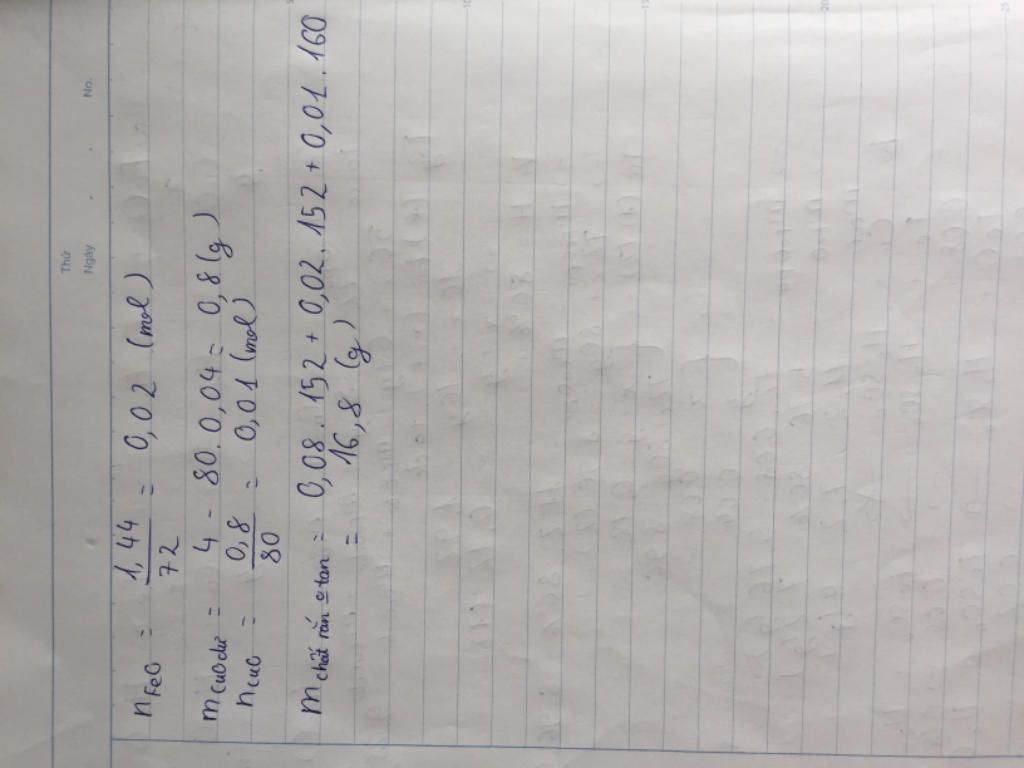 Thứ
Ngày . . No.
n FeO = 1,44 / 72 = 0,02 (mol)
m CuO dư = 4 - 80.0,04 = 0,8 (g)
n CuO = 0,8 / 80 = 0,01 (mol)
m chất rắn o tan = 0,08.152 + 0,02.152 + 0,01.160
= 16,8 (g)
5
10
15
20
25